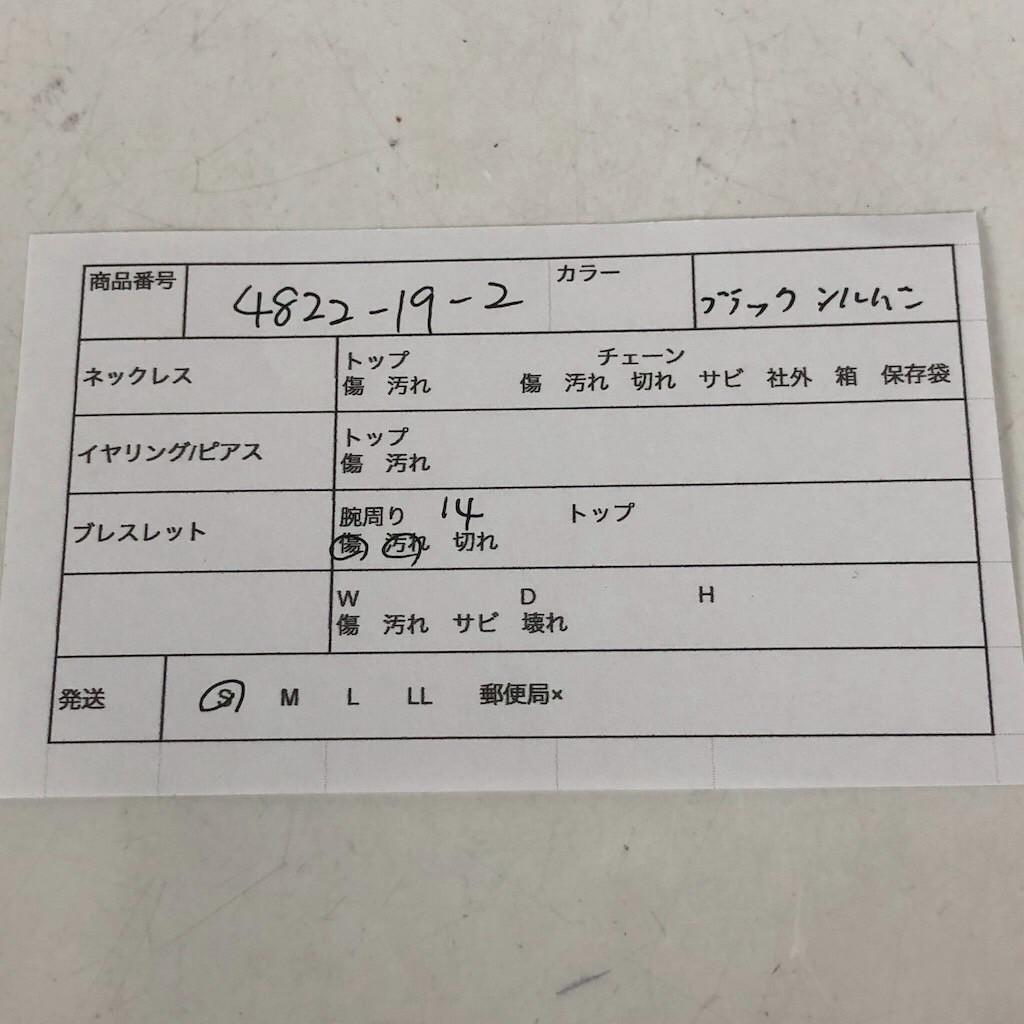 商品番号 4822-19-2 カラー ブラック シルバー
ネックレス トップ チェーン
傷 汚れ 傷 汚れ 切れ サビ 社外 箱 保存袋
イヤリング/ピアス トップ
傷 汚れ
ブレスレット 腕周り 14 トップ
傷 汚れ 切れ
W D H
傷 汚れ サビ 壊れ
発送 S M L LL 郵便局×